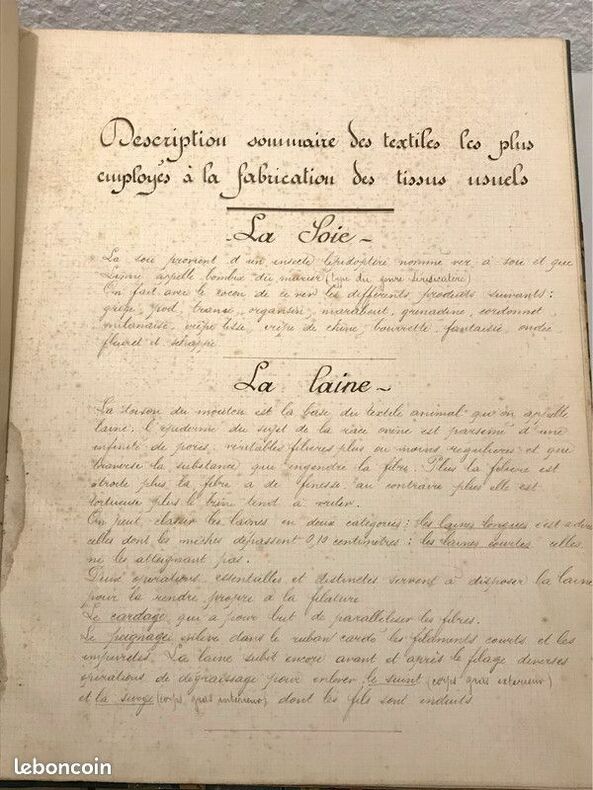 Description sommaire des textiles les plus
employés à la fabrication des tissus usuels
La Soie
La soie provient d'un insecte lépidoptère nommé ver à soie et que
appelle bombix du murier (type du genre
On fait avec le cocon de ce ver les différents produits suivants :
grège, poil, trame, organsin, marabout, grenadine, cordonnet
milanaise, crêpe lisse, crêpe de chine, bourrette, fantaisie, ondée
fleuret et schappe
La laine
La toison du mouton est la base du textile animal qu'on appelle
laine, l'épiderme du sujet de la race ovine est parsemé d'une
infinité de pores, véritables filières plus ou moins régulières et que
traverse la substance qui engendre la fibre. Plus la filière est
étroite plus la fibre a de finesse, au contraire plus elle est
tortueuse plus le brin tend à vriller.
On peut classer les laines en deux catégories : les laines longues c'est à dire
celles dont les mèches dépassent 0,10 centimètres : les laines courtes celles
ne les atteignant pas.
Deux opérations essentielles et distinctes servent à disposer la laine
pour la rendre propre à la filature
Le cardage qui a pour but de paralléliser les fibres.
Le peignage enlève dans le ruban cardé les filaments courts et les
impuretés. La laine subit encore avant et après le filage diverses
opérations de dégraissage pour enlever le suint (corps gras extérieur)
et la surge (corps gras intérieur) dont les fils sont enduits
leboncoin